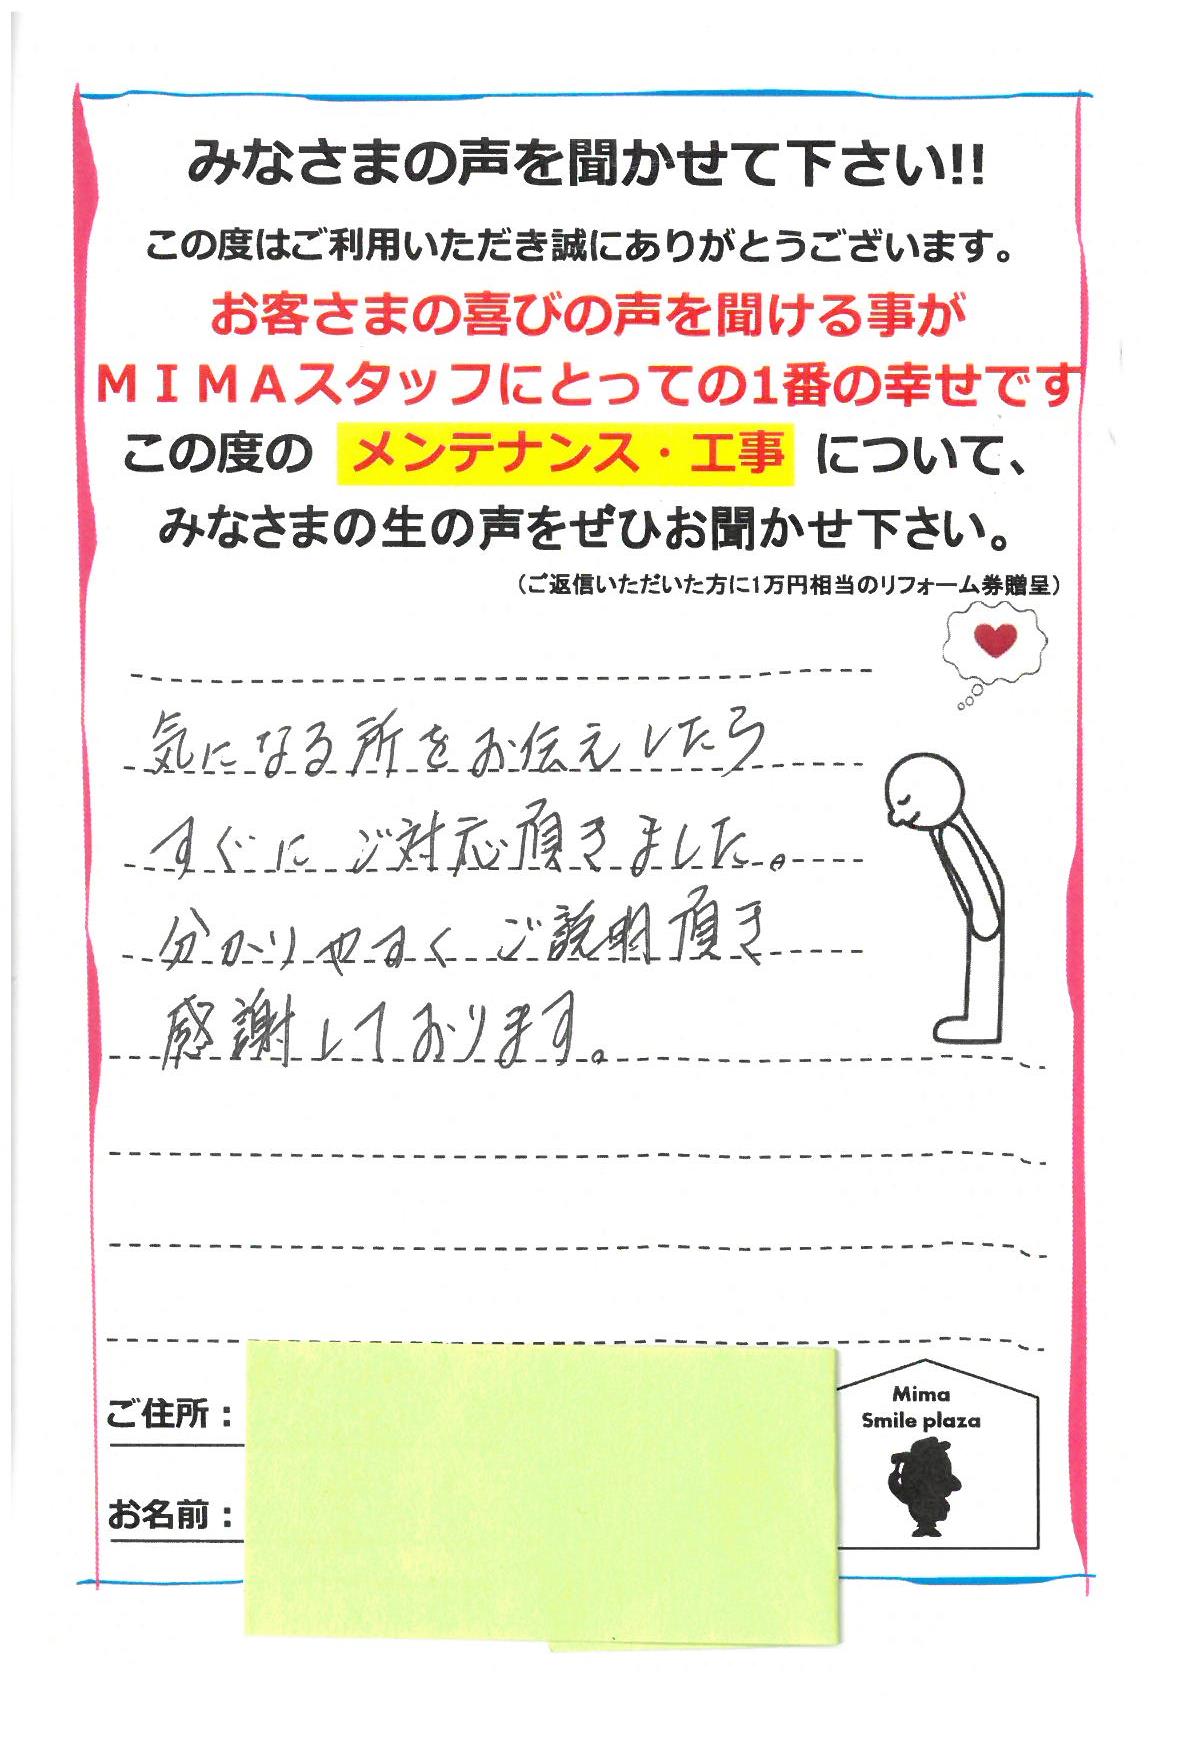 みなさまの声を聞かせて下さい!!
この度はご利用いただき誠にありがとうございます。
お客さまの喜びの声を聞ける事が
ＭＩＭＡスタッフにとっての1番の幸せです
この度の メンテナンス・工事 について、
みなさまの生の声をぜひお聞かせ下さい。
（ご返信いただいた方に1万円相当のリフォーム券贈呈）
気になる所をお伝えしたら
すぐにご対応頂きました。
分かりやすくご説明頂き
感謝しております。
ご住所：
お名前：
Mima
Smile plaza